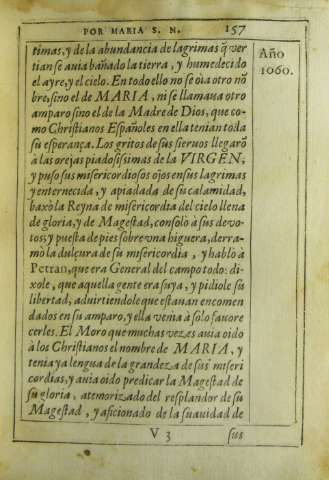 POR MARIA S. N. 157
timas, y de la abundancia de lagrimas q̃ ver
tian se auia bañado la tierra, y humedecido
el ayre, y el cielo. En todo ello no se oia otro nõ
bre, sino el de MARIA, ni se llamaua otro
amparo sino el de la Madre de Dios, que co-
mo Christianos Españoles en ella tenian toda
su esperança. Los gritos de sus sieruos llegarõ
à las orejas piadosissimas de la VIRGEN,
y puso sus misericordiosos ojos en sus lagrimas
y enternecida, y apiadada de su calamidad,
baxò la Reyna de misericordia del cielo llena
de gloria, y de Magestad, consolò à sus deuo-
tos, y puesta de pies sobre vna higuera, derra-
mò la dulçura de su misericordia, y hablò à
Petran, que era General del campo todo: di-
xole, que aquella gente era suya, y pidiole su
libertad, aduirtiendole que estanan encomen
dados en su amparo, y ella venia à solo fauore
cerles. El Moro que muchas vezes auia oido
à los Christianos el nombre de MARIA, y
tenia ya lengua de la grandeza de sus miseri
cordias, y auia oido predicar la Magestad de
su gloria, atemorizado del resplandor de su
Magestad, y aficionado de la suauidad de
V 3 sus
Año
1060.